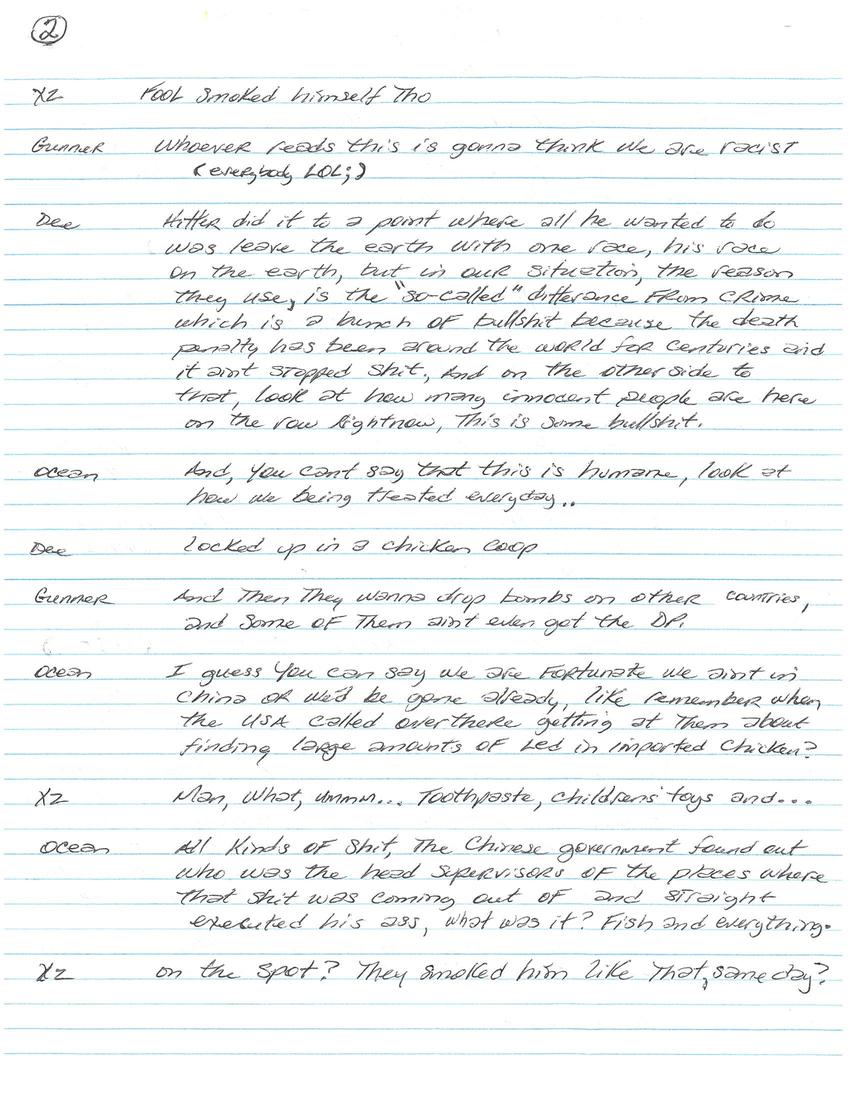 2
XZ Fool smoked himself Tho
Gunner Whoever reads this is gonna think we are racist
(everybody LOL;)
Dee Hitler did it to a point where all he wanted to do
was leave the earth with one race, his race
on the earth, but in our situation, the reason
they use, is the "so-called" difference From crime
which is a bunch of bullshit because the death
penalty has been around the world for centuries and
it aint stopped shit, And on the other side to
that, look at how many innocent people are here
on the row rightnow, This is some bullshit.
Ocean And, You cant say that this is humane, look at
how we being treated everyday..
Dee locked up in a chicken coop
Gunner And Then They wanna drop bombs on other countries,
and some of Them aint even got the DP.
Ocean I guess You can say we are Fortunate we aint in
China or we'd be gone already, like remember when
the USA called overthere getting at Them about
finding large amounts of Led in imported Chicken?
XZ Man, What, ummm... Toothpaste, childrens' toys and...
Ocean All Kinds of Shit, The Chinese government found out
who was the head supervisors of the places where
that shit was coming out of and straight
executed his ass, what was it? Fish and everything.
XZ on the spot? They smoked him like That, same day?